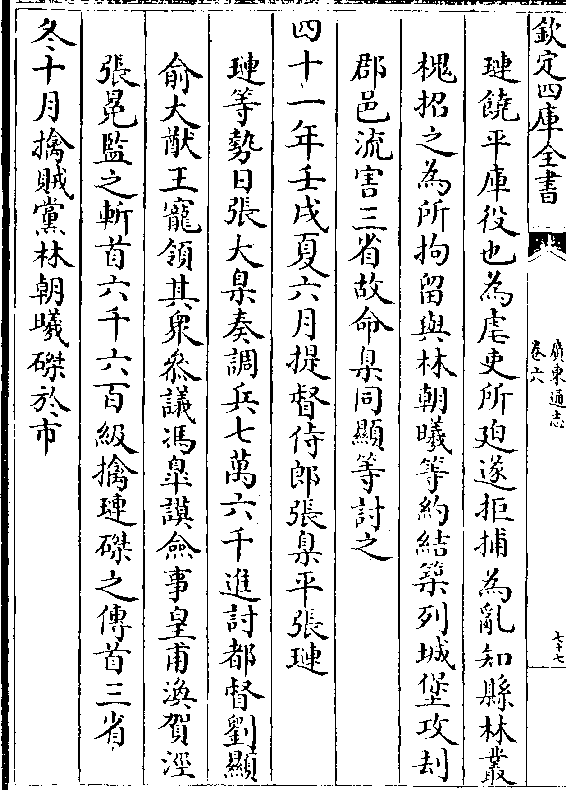 欽定四庫全書
廣東通志
卷六
七十七
璉饒平庫役也為虐吏所廹遂拒捕為亂知縣林叢
槐招之為所拘留與林朝曦等約結築列城堡攻刦
郡邑流害三省故命臬同顯等討之
四十一年壬戌夏六月提督侍郎張臬平張璉
璉等勢日張大臬奏調兵七萬六千進討都督劉顯
俞大猷王寵領其衆叅議馮臯謨僉事皇甫渙賀涇
張冕監之斬首六千六百級擒璉磔之傳首三省
冬十月擒賊黨林朝曦磔於市